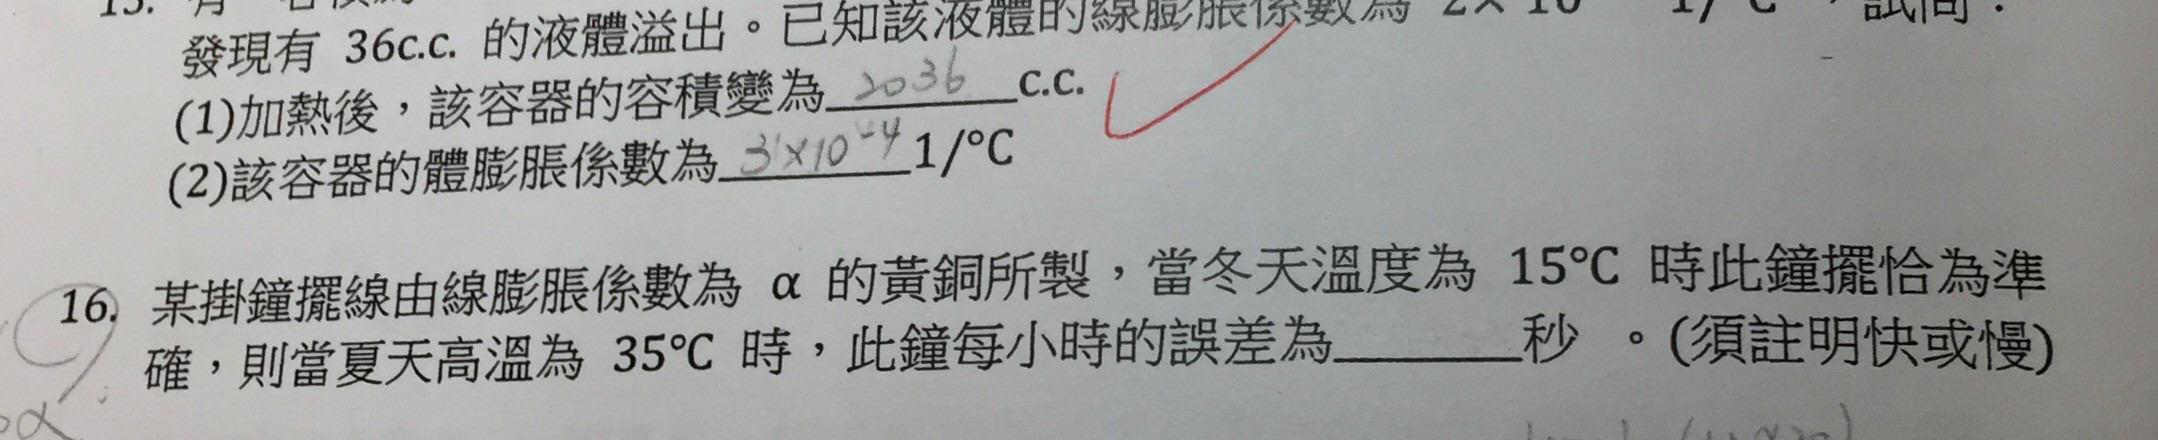 發現有 36c.c. 的液體溢出。已知該液體的線膨脹係數為 2×10 1/°C ,試問:
(1)加熱後,該容器的容積變為 2036 c.c.
(2)該容器的體膨脹係數為 3×10⁻⁴ 1/°C
16. 某掛鐘擺線由線膨脹係數為 α 的黃銅所製,當冬天溫度為 15°C 時此鐘擺恰為準
確,則當夏天高溫為 35°C 時,此鐘每小時的誤差為______秒 。(須註明快或慢)